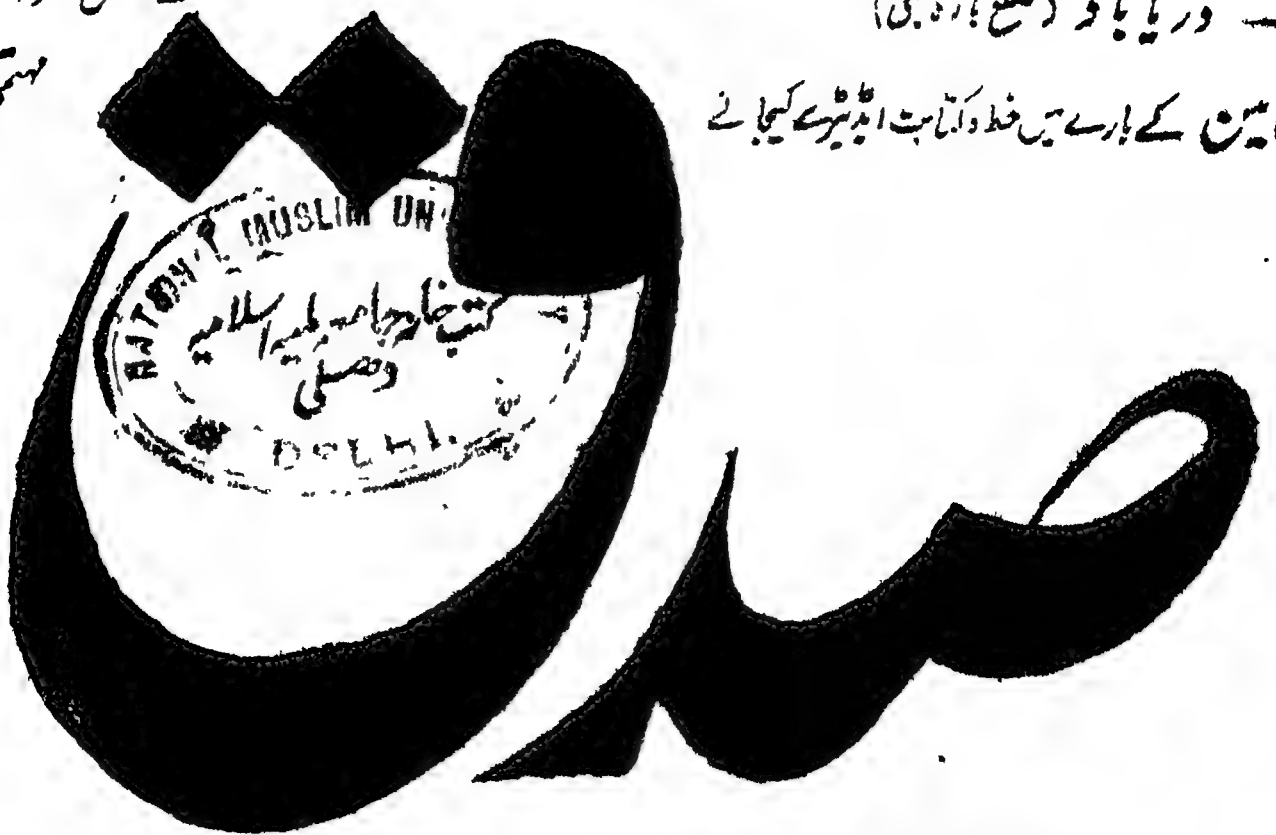 دریاباد (ضلع بارہ بنکی)
کے بارے میں خط و کتابت ایڈیٹر سے کیجائے
صدق
NATIONAL MUSLIM UN
کتب خانہ جامعہ ملیہ اسلامیہ
دھلی
DELHI